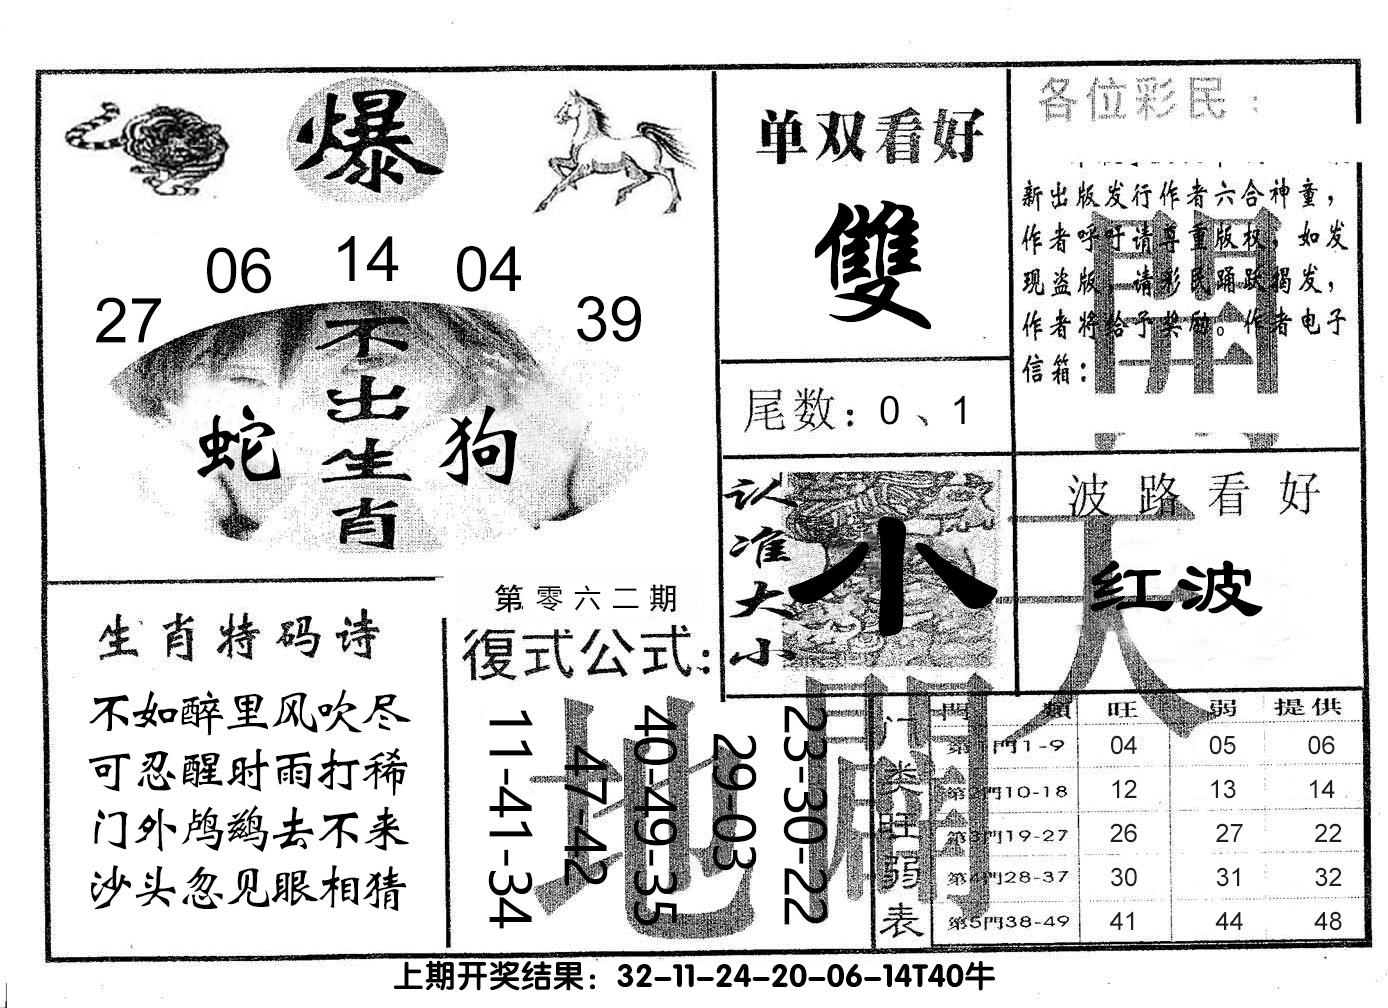 爆
27
06
14
04
39
不出生肖
蛇
狗
单双看好
雙
尾数：0、1
各位彩民：
新出版发行作者六合神童，
作者呼吁请尊重版权，如发
现盗版，请彩民踊跃揭发，
作者将给予奖励。作者电子
信箱：
開
认准大小
小
波路看好
红波
天
生肖特码诗
不如醉里风吹尽
可忍醒时雨打稀
门外鸬鹚去不来
沙头忽见眼相猜
第零六二期
復式公式：
11-41-34
47-42
40-49-35
29-03
23-30-22
地
门类旺弱表
門類 旺 弱 提供
第1門1-9 04 05 06
第2門10-18 12 13 14
第3門19-27 26 27 22
第4門28-37 30 31 32
第5門38-49 41 44 48
上期开奖结果：32-11-24-20-06-14T40牛